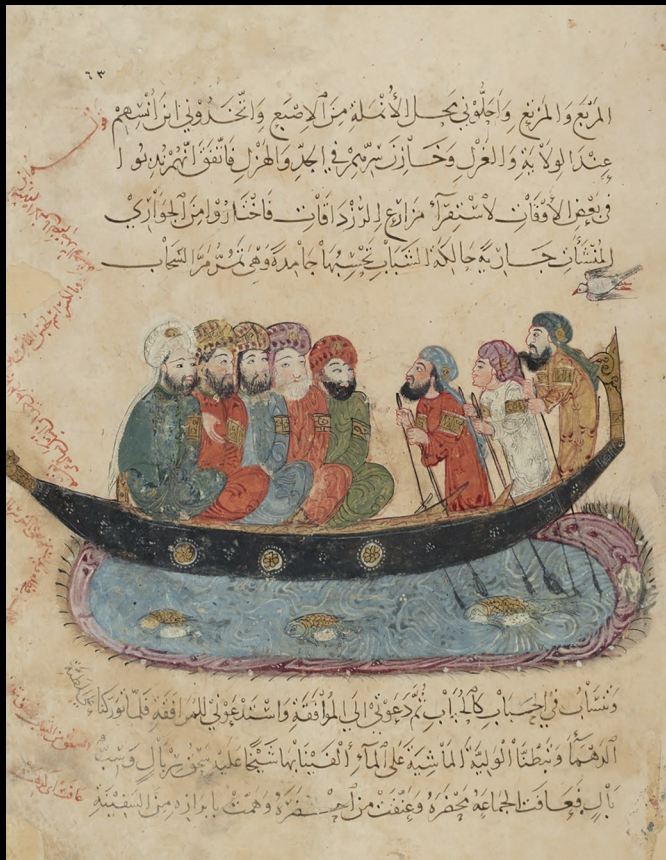 ٦٣
المربع والمرتع واحلوني محل الأنملة من الاصبع واتخذوني ابن انسهم
عند الولاية والعزل وخازن سرهم في الجد والهزل فاتفق انهم ندبوا
في بعض الأوقات لاستقراء مزارع الرزداقات فاختاروا من الجواري
المنشآت جارية حالكة الشيات تحسبها جامدة وهي تمر مر السحاب
وتنساب في الحباب كالحباب ثم دعوني الي الموافقة واستدعوني للمرافقة فلما توركنا
الدهماء وتبطنا الولية الماشية على الماء ألفينا بها شيخا عليه سحق سربال وسب
بال فعافت الجماعة محضره وعنفت من احضره وهمت بابرازه من السفينة